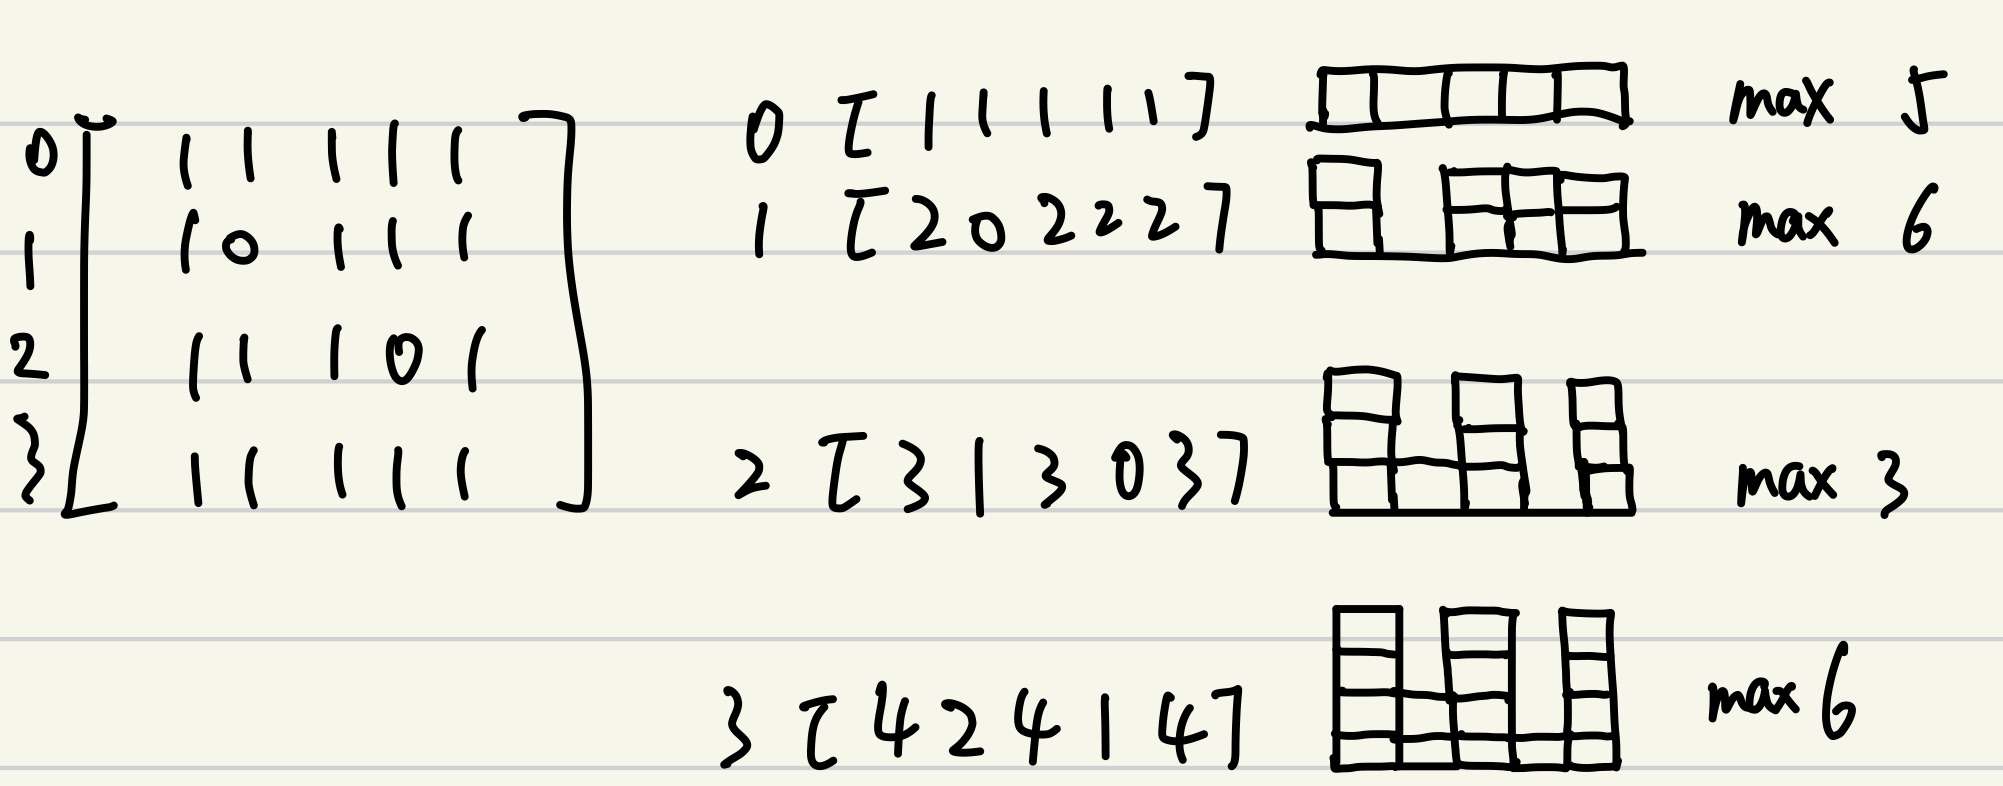 0 [ 1 1 1 1 1 ]
1 [ 1 0 1 1 1 ]
2 [ 1 1 1 0 1 ]
3 [ 1 1 1 1 1 ]
0 [ 1 1 1 1 1 ] max 5
1 [ 2 0 2 2 2 ] max 6
2 [ 3 1 3 0 3 ] max 3
3 [ 4 2 4 1 4 ] max 6